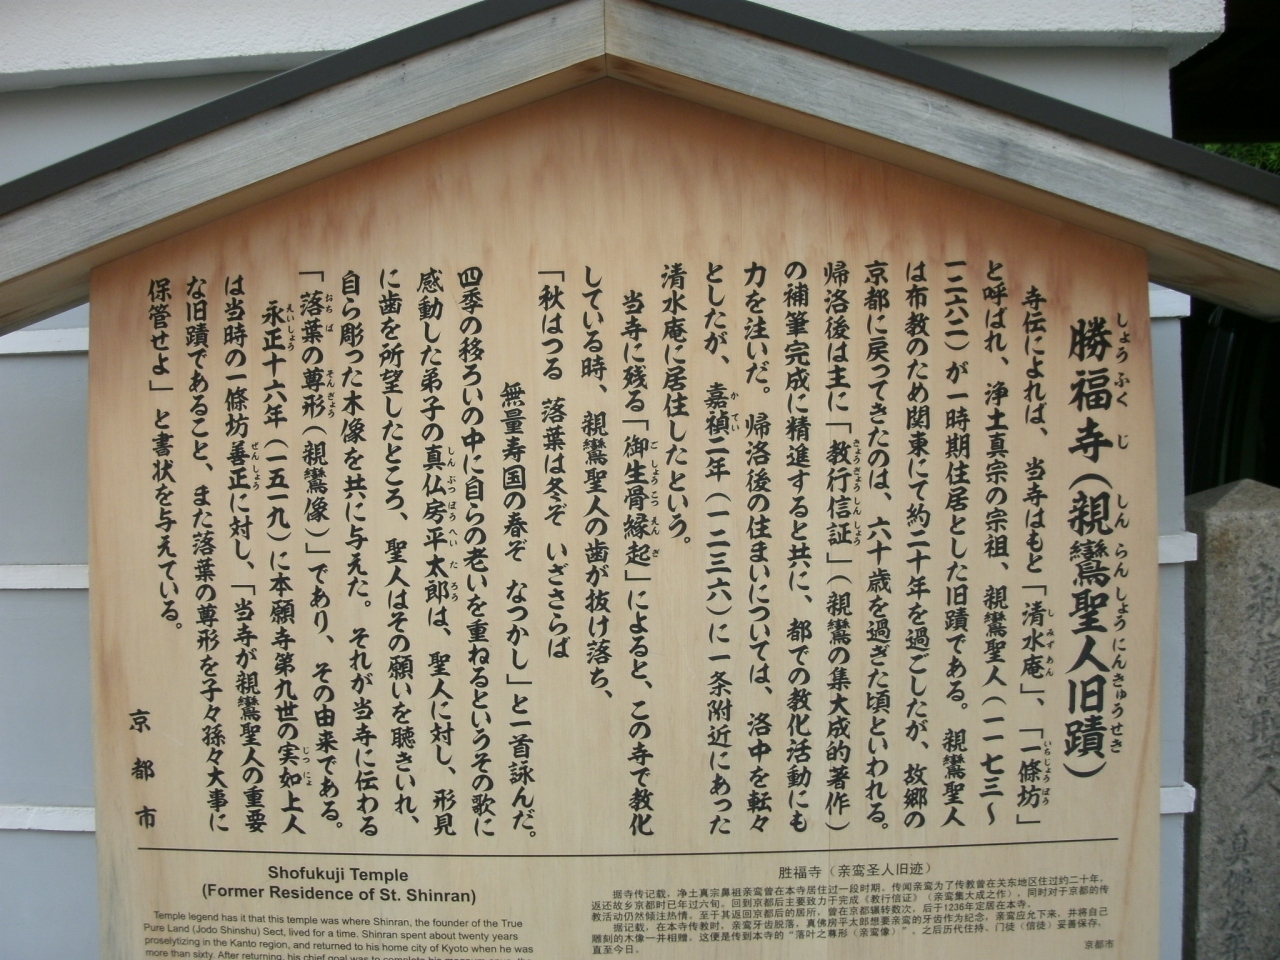 勝福寺(親鸞聖人旧蹟)
寺伝によれば、当寺はもと「清水庵」、「一條坊」
と呼ばれ、浄土真宗の宗祖、親鸞聖人(一一七三〜
一二六二)が一時期住居とした旧蹟である。親鸞聖人
は布教のため関東にて約二十年を過ごしたが、故郷の
京都に戻ってきたのは、六十歳を過ぎた頃といわれる。
帰洛後は主に「教行信証」(親鸞の集大成的著作)
の補筆完成に精進すると共に、都での教化活動にも
力を注いだ。帰洛後の住まいについては、洛中を転々
としたが、嘉禎二年(一二三六)に一条附近にあった
清水庵に居住したという。
当寺に残る「御生骨縁起」によると、この寺で教化
している時、親鸞聖人の歯が抜け落ち、
「秋はつる 落葉は冬ぞ いざさらば
無量寿国の春ぞ なつかし」と一首詠んだ。
四季の移ろいの中に自らの老いを重ねるというその歌に
感動した弟子の真仏房平太郎は、聖人に対し、形見
に歯を所望したところ、聖人はその願いを聴きいれ、
自ら彫った木像を共に与えた。それが当寺に伝わる
「落葉の尊形(親鸞像)」であり、その由来である。
永正十六年(一五一九)に本願寺第九世の実如上人
は当時の一條坊善正に対し、「当寺が親鸞聖人の重要
な旧蹟であること、また落葉の尊形を子々孫々大事に
保管せよ」と書状を与えている。
京都市
Shofukuji Temple
(Former Residence of St. Shinran)
Temple legend has it that this temple was where Shinran, the founder of the True
Pure Land (Jodo Shinshu) Sect, lived for a time. Shinran spent about twenty years
proselytizing in the Kanto region, and returned to his home city of Kyoto when he was
more than sixty. After returning, his chief goal was to complete his
胜福寺(亲鸾圣人旧迹)
据寺传记载,净土真宗鼻祖亲鸾曾在本寺居住过一段时期。传闻亲鸾为了传教曾在关东地区住过约二十年,
返还故乡京都时已年过六旬。回到京都后主要致力于完成《教行信证》(亲鸾集大成之作)。同时对于京都的传
教活动仍然倾注热情。至于其返回京都后的居所,曾在京都辗转数次,后于1236年定居在本寺。
据记载,在本寺传教时,亲鸾牙齿脱落,真佛房平太郎想要亲鸾的牙齿作为纪念。亲鸾应允下来,并将自己
雕刻的木像一并相赠。这便是传到本寺的"落叶之尊形(亲鸾像)"。之后历代住持、门徒(信徒)妥善保存,
直至今日。
京都市